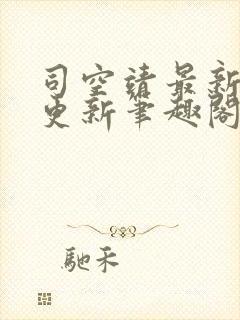 司空靖最新
更新笔趣阁
驰禾